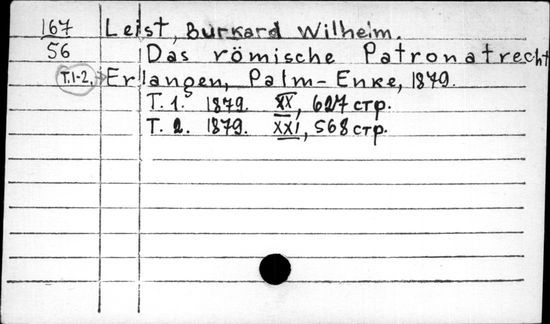 167 Leist, Burkard Wilheim.
56 Das römische Patronatrecht
T.1-2. Erlangen, Palm-Enke, 1879.
T. 1. 1879. XX, 627 стр.
T. 2. 1879. XXI, 568 стр.